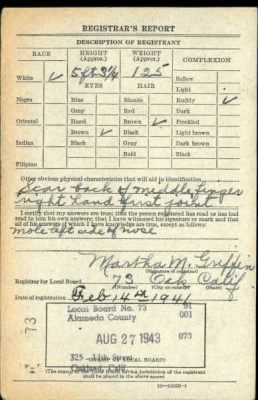 REGISTRAR'S REPORT
DESCRIPTION OF REGISTRANT
RACE HEIGHT (Approx.) WEIGHT (Approx.) COMPLEXION
5 ft 3 1/4 125 Sallow
White ✓ EYES HAIR Light
Negro Blue Blonde Ruddy ✓
Gray Red Dark
Oriental Hazel Brown ✓ Freckled
Brown ✓ Black Light brown
Indian Black Gray Dark brown
Bald Black
Filipino
Other obvious physical characteristics that will aid in identification
Scar back of middle finger
right hand first joint
I certify that my answers are true; that the person registered has read or has had
read to him his own answers; that I have witnessed his signature or mark and that
all of his answers of which I have knowledge are true, except as follows:
mole left side of nose
Martha M. Griffin
(Signature of registrar)
Registrar for Local Board 73 Oak Calif
Date of registration Feb 14th 194
Local Board No. 73 91
Alameda County 001
AUG 27 1943 073
325 - 11th Street
Oakland, Calif.
(STAMP OF LOCAL BOARD)
(The stamp of the Local Board having jurisdiction of the registrant
shall be placed in the above space)
73